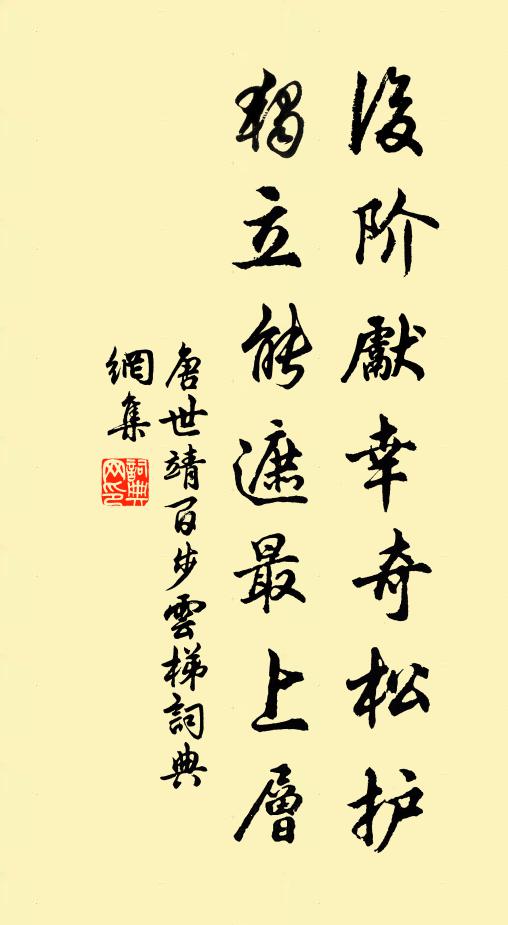 後阶獻幸奇松护
獨立能遮最上層
唐世靖百步雲梯詞典
網集
詞典
网印